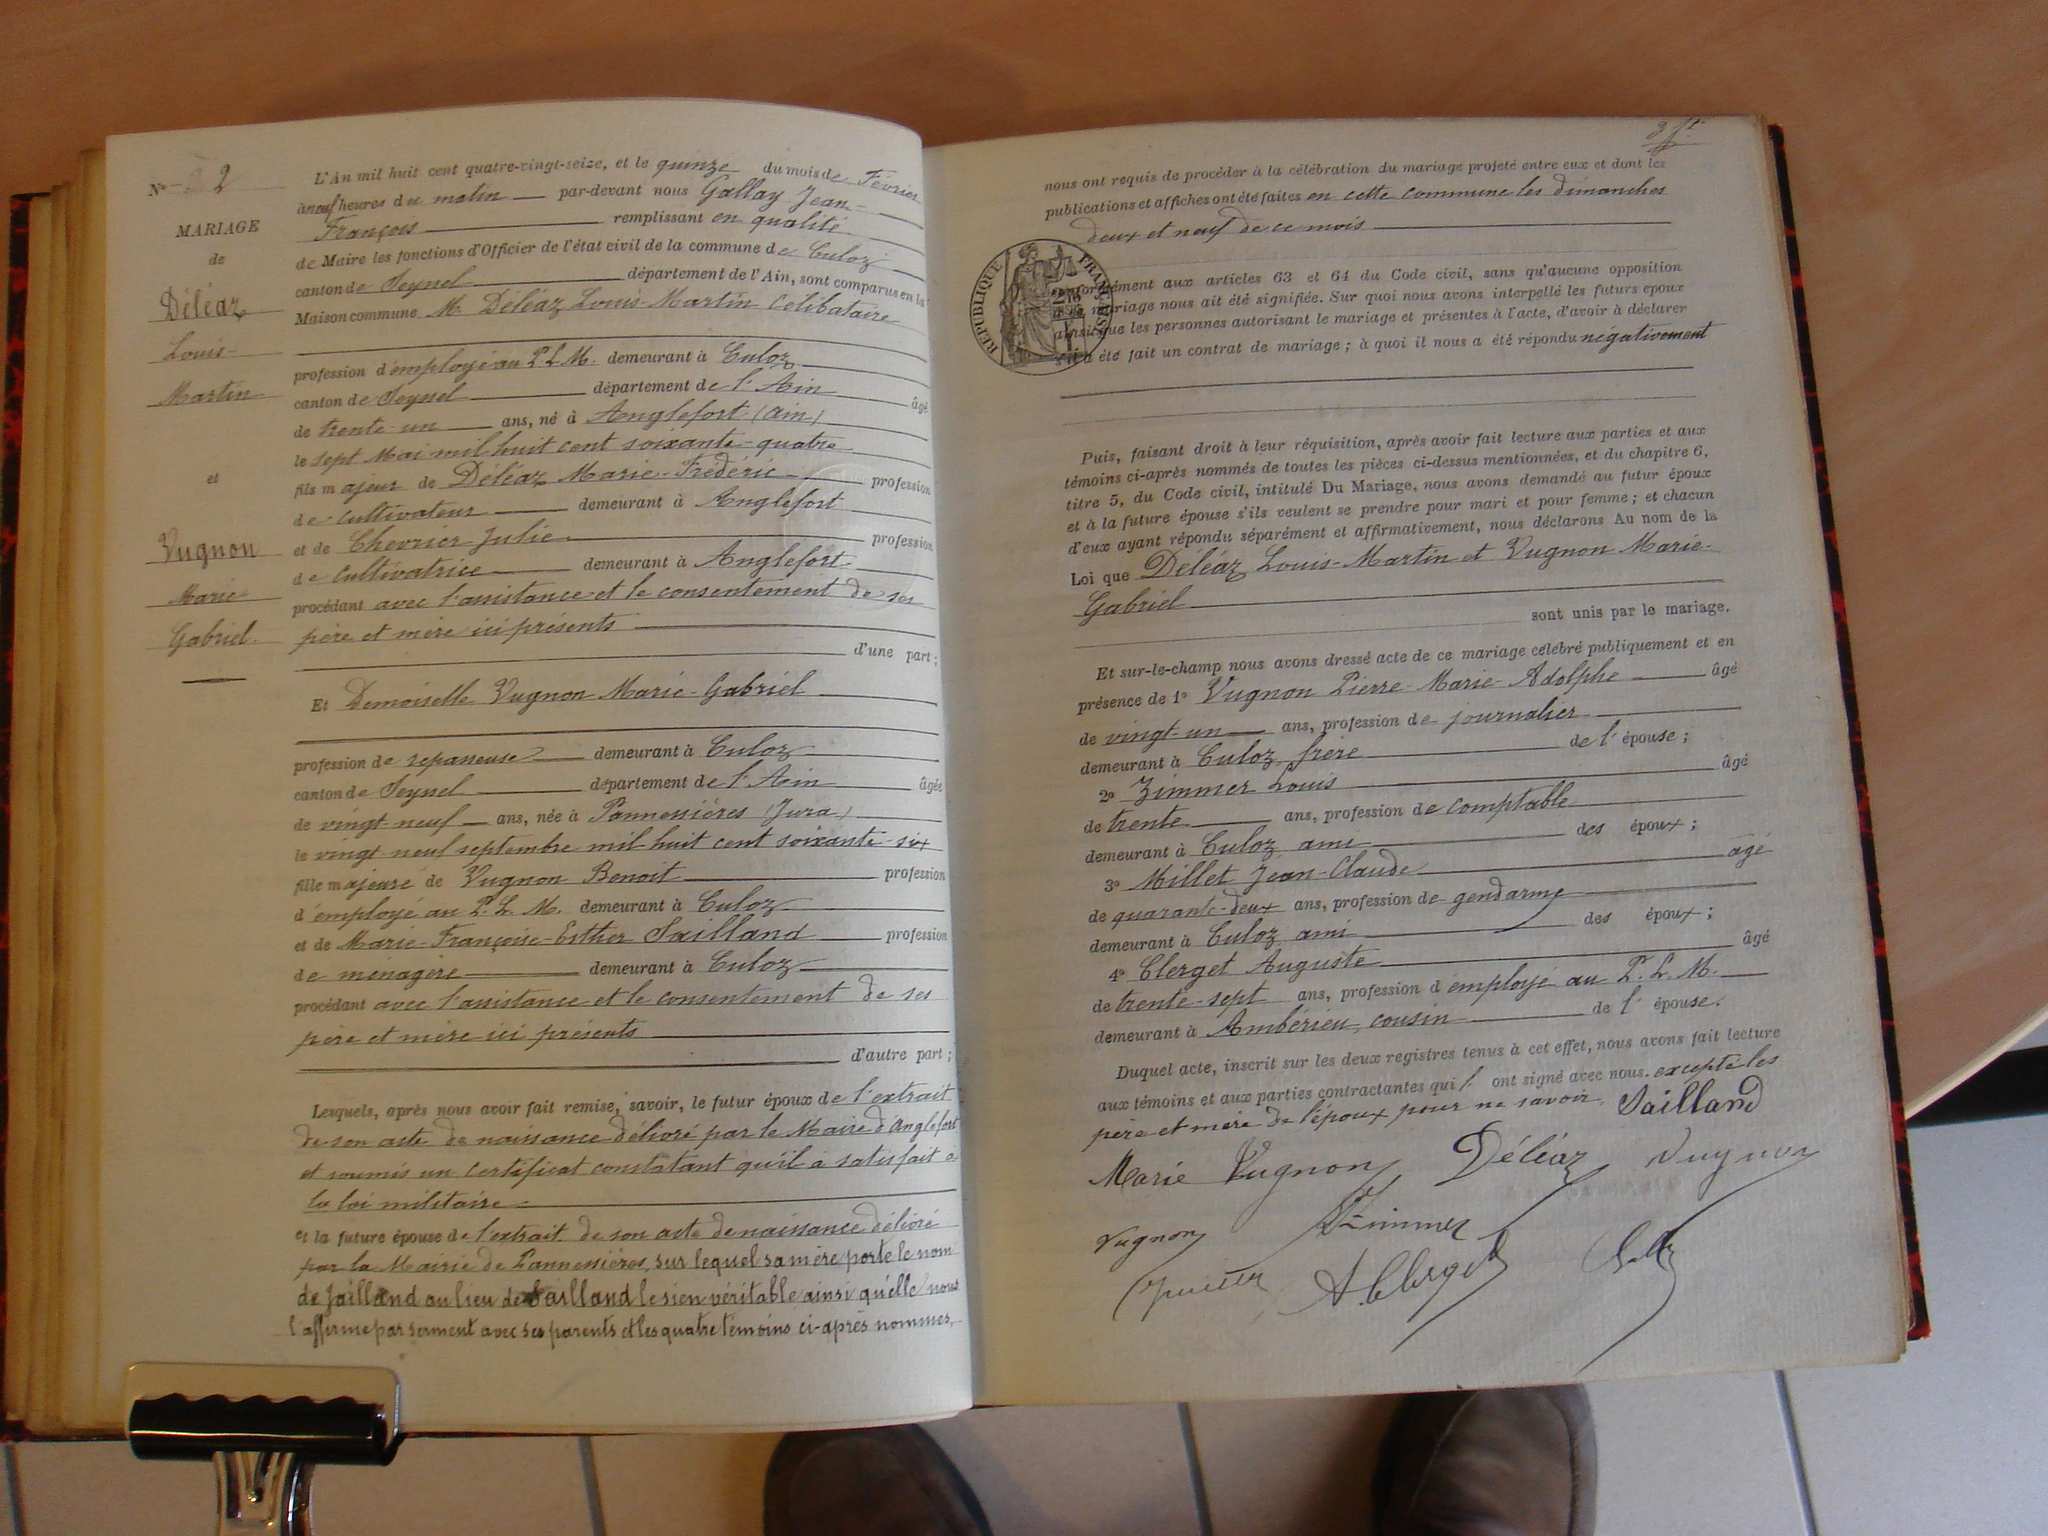 N° 2
MARIAGE
de
Déléaz
Louis-
Martin
et
Vugnon
Marie
Gabriel
L'An mil huit cent quatre-vingt-seize, et le quinze du mois de Février
à neuf heures du matin par-devant nous Gallay Jean-
François remplissant en qualité
de Maire les fonctions d'Officier de l'état civil de la commune de Culoz
canton de Seyssel département de l'Ain, sont comparus en la
Maison commune M. Déléaz Louis-Martin Célibataire
profession d'employé au P.L.M. demeurant à Culoz
canton de Seyssel département de l'Ain âgé
de trente-un ans, né à Anglefort (Ain)
le sept Mai mil huit cent soixante-quatre
fils majeur de Déléaz Marie-Frédéric profession
de cultivateur demeurant à Anglefort
et de Chevrier Julie profession
de cultivatrice demeurant à Anglefort
procédant avec l'assistance et le consentement de ses
père et mère ici présents
d'une part;
Et Demoiselle Vugnon Marie-Gabriel
profession de repasseuse demeurant à Culoz
canton de Seyssel département de l'Ain âgée
de vingt-neuf ans, née à Pannessières (Jura)
le vingt-neuf septembre mil huit cent soixante-six
fille majeure de Vugnon Benoit profession
d'employé au P.L.M. demeurant à Culoz
et de Marie-Françoise-Esther Sailland profession
de ménagère demeurant à Culoz
procédant avec l'assistance et le consentement de ses
père et mère ici présents
d'autre part;
Lesquels, après nous avoir fait remise, savoir, le futur époux de l'extrait
de son acte de naissance délivré par le Maire d'Anglefort
et soumis un certificat constatant qu'il a satisfait à
la loi militaire
et la future épouse de l'extrait de son acte de naissance délivré
par la Mairie de Pannessières, sur lequel sa mère porte le nom
de Jailland au lieu de Sailland le sien véritable ainsi qu'elle nous
l'affirme par serment avec ses parents et les quatre témoins ci-après nommés,
nous ont requis de procéder à la célébration du mariage projeté entre eux et dont les
publications et affiches ont été faites en cette commune les dimanches
deux et neuf de ce mois
RÉPUBLIQUE FRANÇAISE
conformément aux articles 63 et 64 du Code civil, sans qu'aucune opposition
mariage nous ait été signifiée. Sur quoi nous avons interpellé les futurs époux
ainsi que les personnes autorisant le mariage et présentes à l'acte, d'avoir à déclarer
s'il a été fait un contrat de mariage; à quoi il nous a été répondu négativement
Puis, faisant droit à leur réquisition, après avoir fait lecture aux parties et aux
témoins ci-après nommés de toutes les pièces ci-dessus mentionnées, et du chapitre 6,
titre 5, du Code civil, intitulé Du Mariage, nous avons demandé au futur époux
et à la future épouse s'ils veulent se prendre pour mari et pour femme; et chacun
d'eux ayant répondu séparément et affirmativement, nous déclarons Au nom de la
Loi que Déléaz Louis-Martin et Vugnon Marie-
Gabriel
sont unis par le mariage.
Et sur-le-champ nous avons dressé acte de ce mariage célébré publiquement et en
présence de 1° Vugnon Pierre-Marie-Adolphe âgé
de vingt-un ans, profession de journalier
demeurant à Culoz, frère de l'épouse;
2° Zimmer Louis âgé
de trente ans, profession de comptable
demeurant à Culoz ami des époux;
3° Millet Jean-Claude âgé
de quarante-deux ans, profession de gendarme
demeurant à Culoz ami des époux;
4° Clerget Auguste âgé
de trente-sept ans, profession d'employé au P.L.M.
demeurant à Ambérieu, cousin de l'épouse.
Duquel acte, inscrit sur les deux registres tenus à cet effet, nous avons fait lecture
aux témoins et aux parties contractantes qui ont signé avec nous. excepté les
père et mère de l'époux pour ne savoir. Sailland
Marie Vugnon Déléaz Vugnon
Vugnon Zimmer
A. Clerget